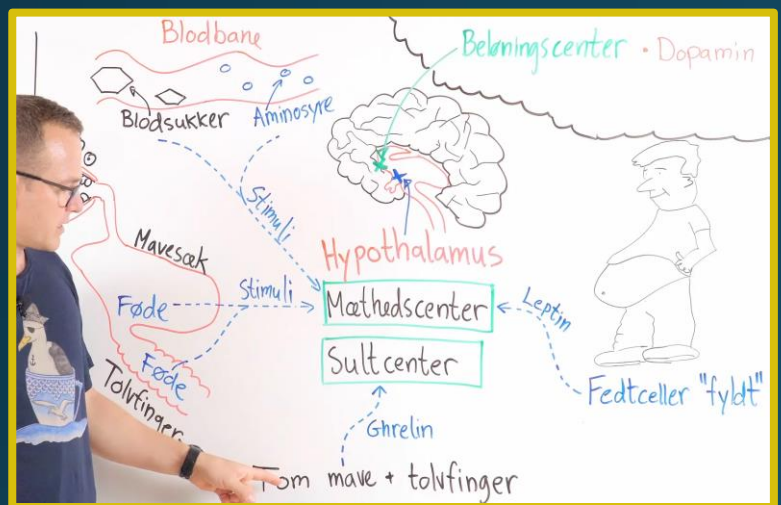 Blodbane
Belønningscenter • Dopamin
Blodsukker
Aminosyre
Stimuli
Hypothalamus
Mavesæk
Føde
Stimuli
Mæthedscenter
Leptin
Føde
Sultcenter
Tolvfinger
Fedtceller "fyldt"
Ghrelin
Tom mave + tolvfinger